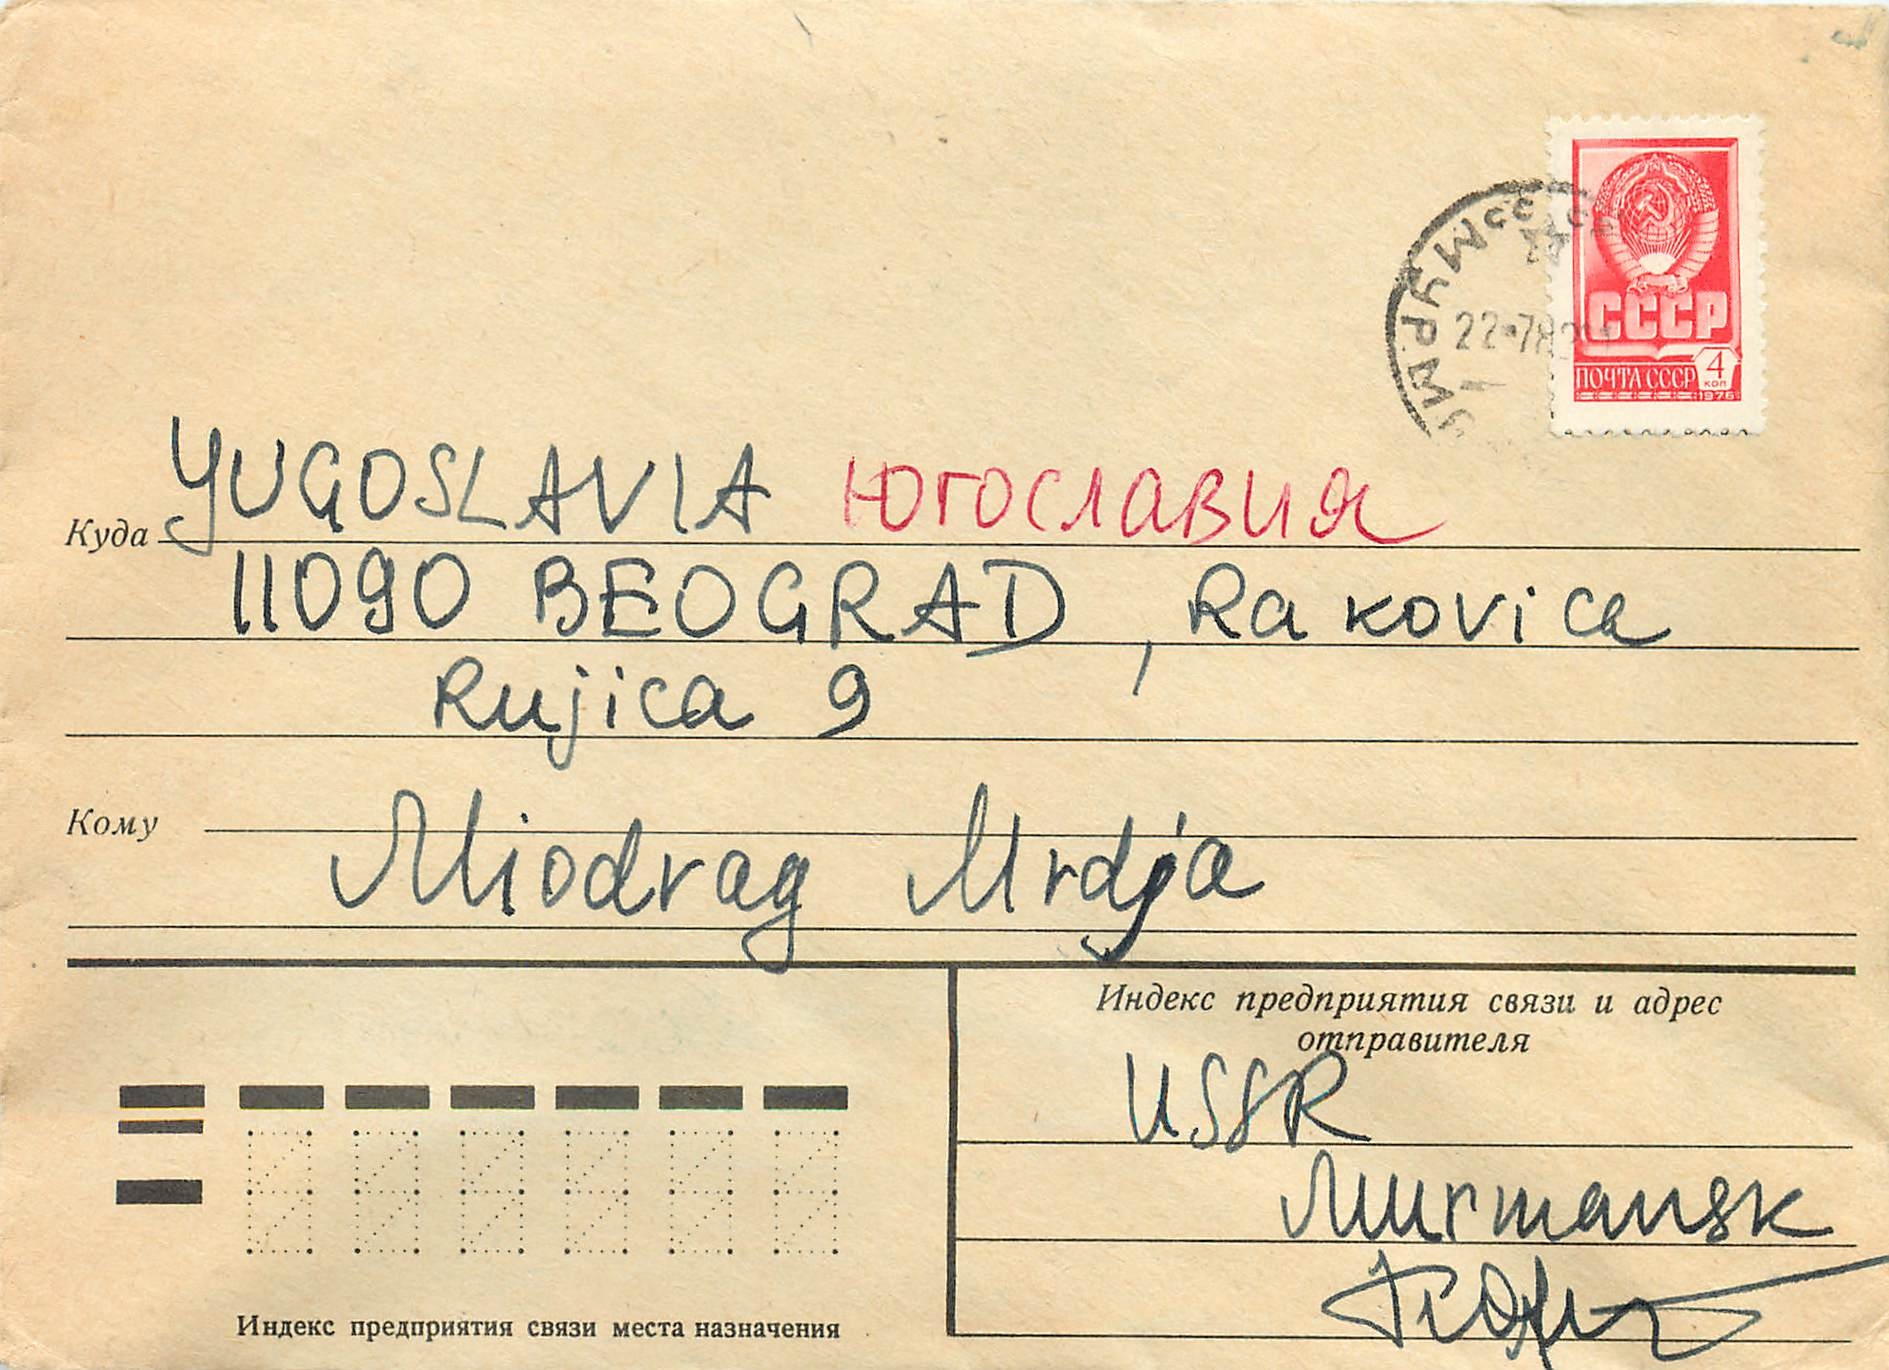 СССР
4
коп
ПОЧТА СССР
1976
Куда YUGOSLAVIA Югославия
11090 BEOGRAD, Rakovica
Rujica 9
Кому
Miodrag Mrdja
Индекс предприятия связи и адрес
отправителя
USSR
Murmansk
Индекс предприятия связи места назначения